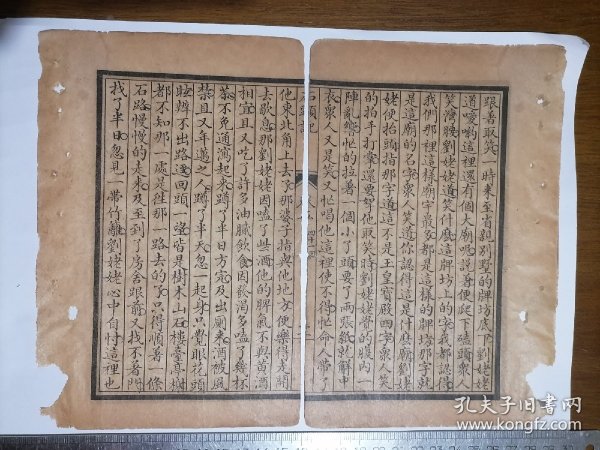 跟着取笑一時來至省親別墅的牌坊底下劉姥姥
道噯喲這裡還有個大廟呢說着便爬下磕頭衆人
笑灣腰劉姥姥道笑什麼這牌坊上的字我都認得
我們那裡這樣廟宇最多都是這樣的牌坊那字就
是這廟的名字衆人笑道你認得這是什麼廟劉姥
姥便抬頭指那字道這不是玉皇寶殿四字衆人笑
的拍手打掌還要幫他取笑時劉姥姥覺的腹內一
陣亂響忙的拉着一個小丫頭要了兩張紙就解中
衣衆人又是笑又忙喝他這裡使不得忙命人帶了
石頭記
他東北角上去了那婆子指與他地方便樂得走開
去歇息那劉姥姥因嗑了些酒他的脾氣不與黃酒
相宜且又吃了許多油膩飲食因發渴多嗑了幾杯
茶不免通瀉起來蹲了半日方完及出厠來酒被風
禁且又年邁之人蹲了半天忽一起身只覺眼花頭
眩辨不出路逕四頭一望皆是樹木山石樓臺房榭
都不知那一處是往那一路去的了只得順着一條
石路慢慢的走來及至到了房舍跟前又找不着門
找了半日忽見一帶竹籬劉姥姥心中自忖這裡也
孔夫子旧书网